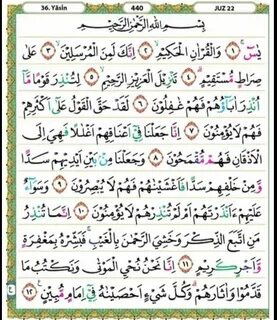 36. Yâsîn 440 JUZ 22
بِسْمِ اللّٰهِ الرَّحْمٰنِ الرَّحِيْمِ
يٰسٓ ۝١ وَالْقُرْاٰنِ الْحَكِيْمِ ۝٢ اِنَّكَ لَمِنَ الْمُرْسَلِيْنَ ۝٣ عَلٰى
صِرَاطٍ مُّسْتَقِيْمٍ ۝٤ تَنْزِيْلَ الْعَزِيْزِ الرَّحِيْمِ ۝٥ لِتُنْذِرَ قَوْمًا مَّآ
اُنْذِرَ اٰبَآؤُهُمْ فَهُمْ غٰفِلُوْنَ ۝٦ لَقَدْ حَقَّ الْقَوْلُ عَلٰٓى اَكْثَرِهِمْ
فَهُمْ لَا يُؤْمِنُوْنَ ۝٧ اِنَّا جَعَلْنَا فِيْٓ اَعْنَاقِهِمْ اَغْلٰلًا فَهِيَ اِلَى
الْاَذْقَانِ فَهُمْ مُّقْمَحُوْنَ ۝٨ وَجَعَلْنَا مِنْۢ بَيْنِ اَيْدِيْهِمْ سَدًّا
وَّمِنْ خَلْفِهِمْ سَدًّا فَاَغْشَيْنٰهُمْ فَهُمْ لَا يُبْصِرُوْنَ ۝٩ وَسَوَآءٌ
عَلَيْهِمْ ءَاَنْذَرْتَهُمْ اَمْ لَمْ تُنْذِرْهُمْ لَا يُؤْمِنُوْنَ ۝١٠ اِنَّمَا تُنْذِرُ
مَنِ اتَّبَعَ الذِّكْرَ وَخَشِيَ الرَّحْمٰنَ بِالْغَيْبِۚ فَبَشِّرْهُ بِمَغْفِرَةٍ
وَّاَجْرٍ كَرِيْمٍ ۝١١ اِنَّا نَحْنُ نُحْيِ الْمَوْتٰى وَنَكْتُبُ مَا
قَدَّمُوْا وَاٰثَارَهُمْۗ وَكُلَّ شَيْءٍ اَحْصَيْنٰهُ فِيْٓ اِمَامٍ مُّبِيْنٍ ۝١٢